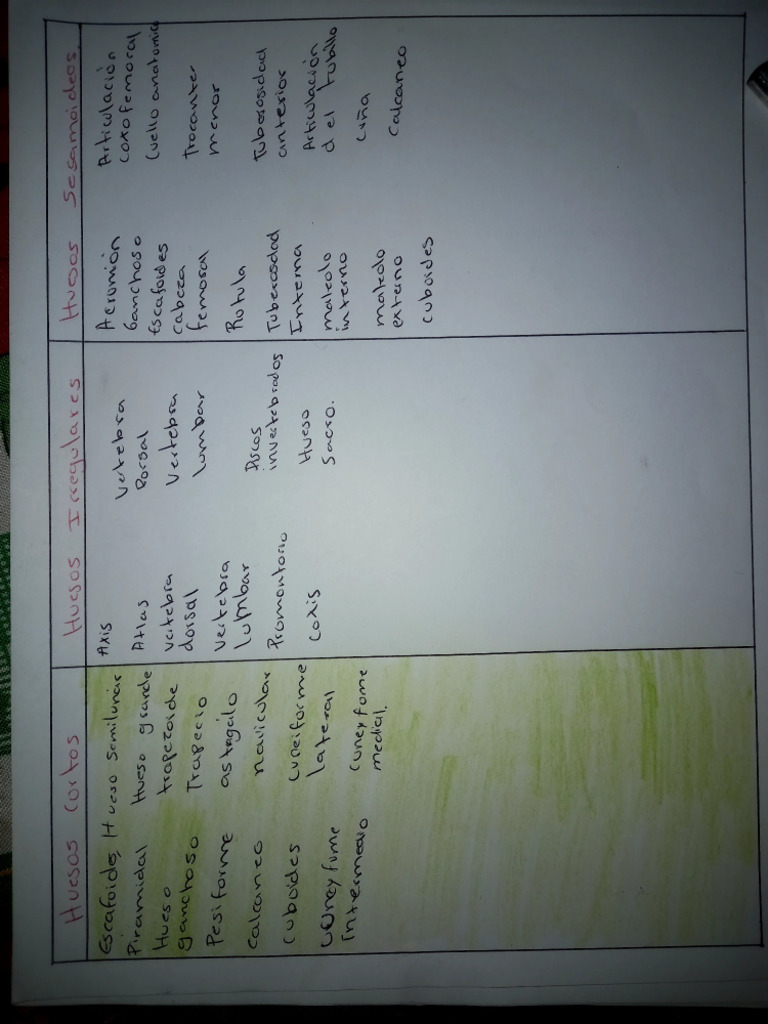 Huesos Cortos
Escafoides
Piramidal
Hueso
ganchoso
Pesiforme
calcaneo
cuboides
Intermedio
Hueso Semilunar
Hueso grande
trapezoide
Trapecio
astragálo
navicular
cuneiforme
lateral
cuneyfome
medial.
Huesos Irregulares
Axis
Atlas
vertebra
dorsal
vertebra
lumbar
Promontorio
coxis
vertebra
Dorsal
vertebra
lumbar
Discos
invertebrados
Hueso
Sacro.
Huesos Sesamoideos
Acromión
Ganchoso
Escafoides
cabeza
femoral
Rotula
Tuberosidad
Interna
maleolo
interno
maleolo
externo
cuboides
Articulación
coxofemoral
Cuello anatomico
Trocanter
menor
Tuberosidad
anterior
Articulación
del tobillo
cuña
calcaneo